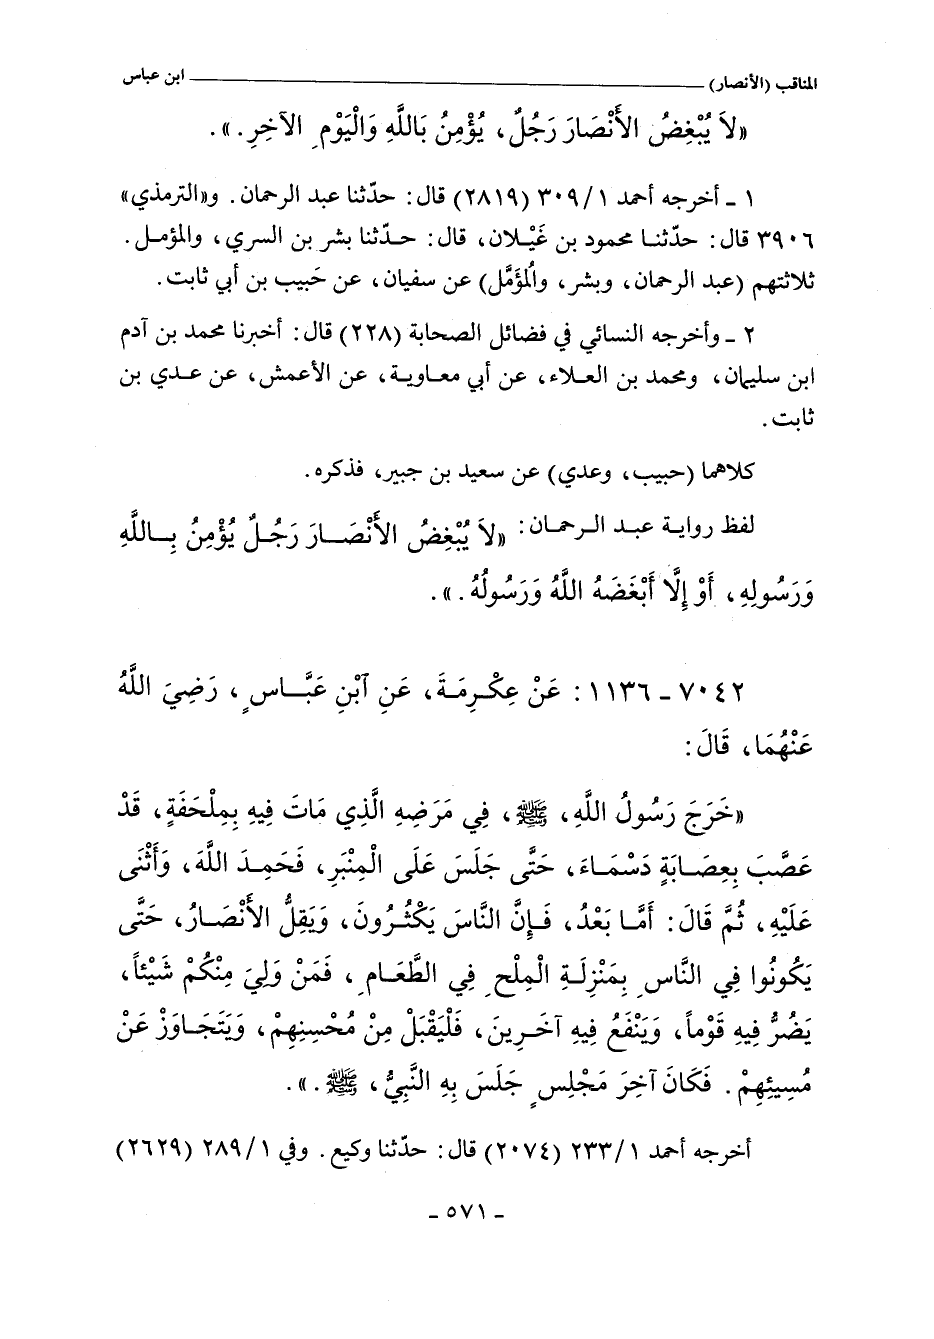 المناقب (الأنصار) ـــــــــــــــــــــــــــــــــــــــــ ابن عباس
«لاَ يُبْغِضُ الأَنْصَارَ رَجُلٌ، يُؤْمِنُ بَاللَّهِ وَالْيَوْمِ الآخِرِ.».
١ - أخرجه أحمد ٣٠٩/١ (٢٨١٩) قال: حدّثنا عبد الرحمان. و«الترمذي»
٣٩٠٦ قال: حدّثنا محمود بن غَيْلان، قال: حدّثنا بشر بن السري، والمؤمل.
ثلاثتهم (عبد الرحمان، وبشر، والْمُؤَمَّل) عن سفيان، عن حَبيب بن أبي ثابت.
٢ - وأخرجه النسائي في فضائل الصحابة (٢٢٨) قال: أخبرنا محمد بن آدم
ابن سليمان، ومحمد بن العلاء، عن أبي معاوية، عن الأعمش، عن عدي بن
ثابت.
كلاهما (حبيب، وعدي) عن سعيد بن جبير، فذكره.
لفظ رواية عبد الرحمان: «لاَ يُبْغِضُ الأَنْصَارَ رَجُلٌ يُؤْمِنُ بِاللَّهِ
وَرَسُولِهِ، أَوْ إِلَّا أَبْغَضَهُ اللَّهُ وَرَسُولُهُ.».
٧٠٤٢ - ١١٣٦: عَنْ عِكْرِمَةَ، عَنِ آبْنِ عَبَّاسٍ، رَضِيَ اللَّهُ
عَنْهُمَا، قَالَ:
«خَرَجَ رَسُولُ اللَّهِ، ﷺ، فِي مَرَضِهِ الَّذِي مَاتَ فِيهِ بِمِلْحَفَةٍ، قَدْ
عَصَّبَ بِعِصَابَةٍ دَسْمَاءَ، حَتَّى جَلَسَ عَلَى الْمِنْبَرِ، فَحَمِدَ اللَّهَ، وَأَثْنَى
عَلَيْهِ، ثُمَّ قَالَ: أَمَّا بَعْدُ، فَإِنَّ النَّاسَ يَكْثُرُونَ، وَيَقِلُّ الأَنْصَارُ، حَتَّى
يَكُونُوا فِي النَّاسِ بِمَنْزِلَةِ الْمِلْحِ فِي الطَّعَامِ، فَمَنْ وَلِيَ مِنْكُمْ شَيْئاً،
يَضُرُّ فِيهِ قَوْماً، وَيَنْفَعُ فِيهِ آخَرِينَ، فَلْيَقْبَلْ مِنْ مُحْسِنِهِمْ، وَيَتَجَاوَزْ عَنْ
مُسِيئِهِمْ. فَكَانَ آخِرَ مَجْلِسٍ جَلَسَ بِهِ النَّبِيُّ، ﷺ.».
أخرجه أحمد ٢٣٣/١ (٢٠٧٤) قال: حدّثنا وكيع. وفي ٢٨٩/١ (٢٦٢٩)
- ٥٧١ -